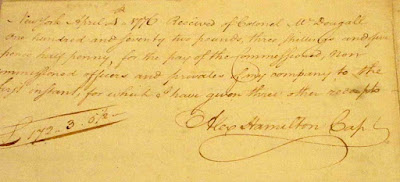 New York April 4th 1776 Received of Colonel McDougall
one hundred and seventy two pounds, three shillings and five
pence half penny, for the pay of the Commissioned, Non
commissioned officers and privates of my company to the
first instant, for which I have given three other receipts
£ 172 - 3 - 5½
Alex Hamilton Capt